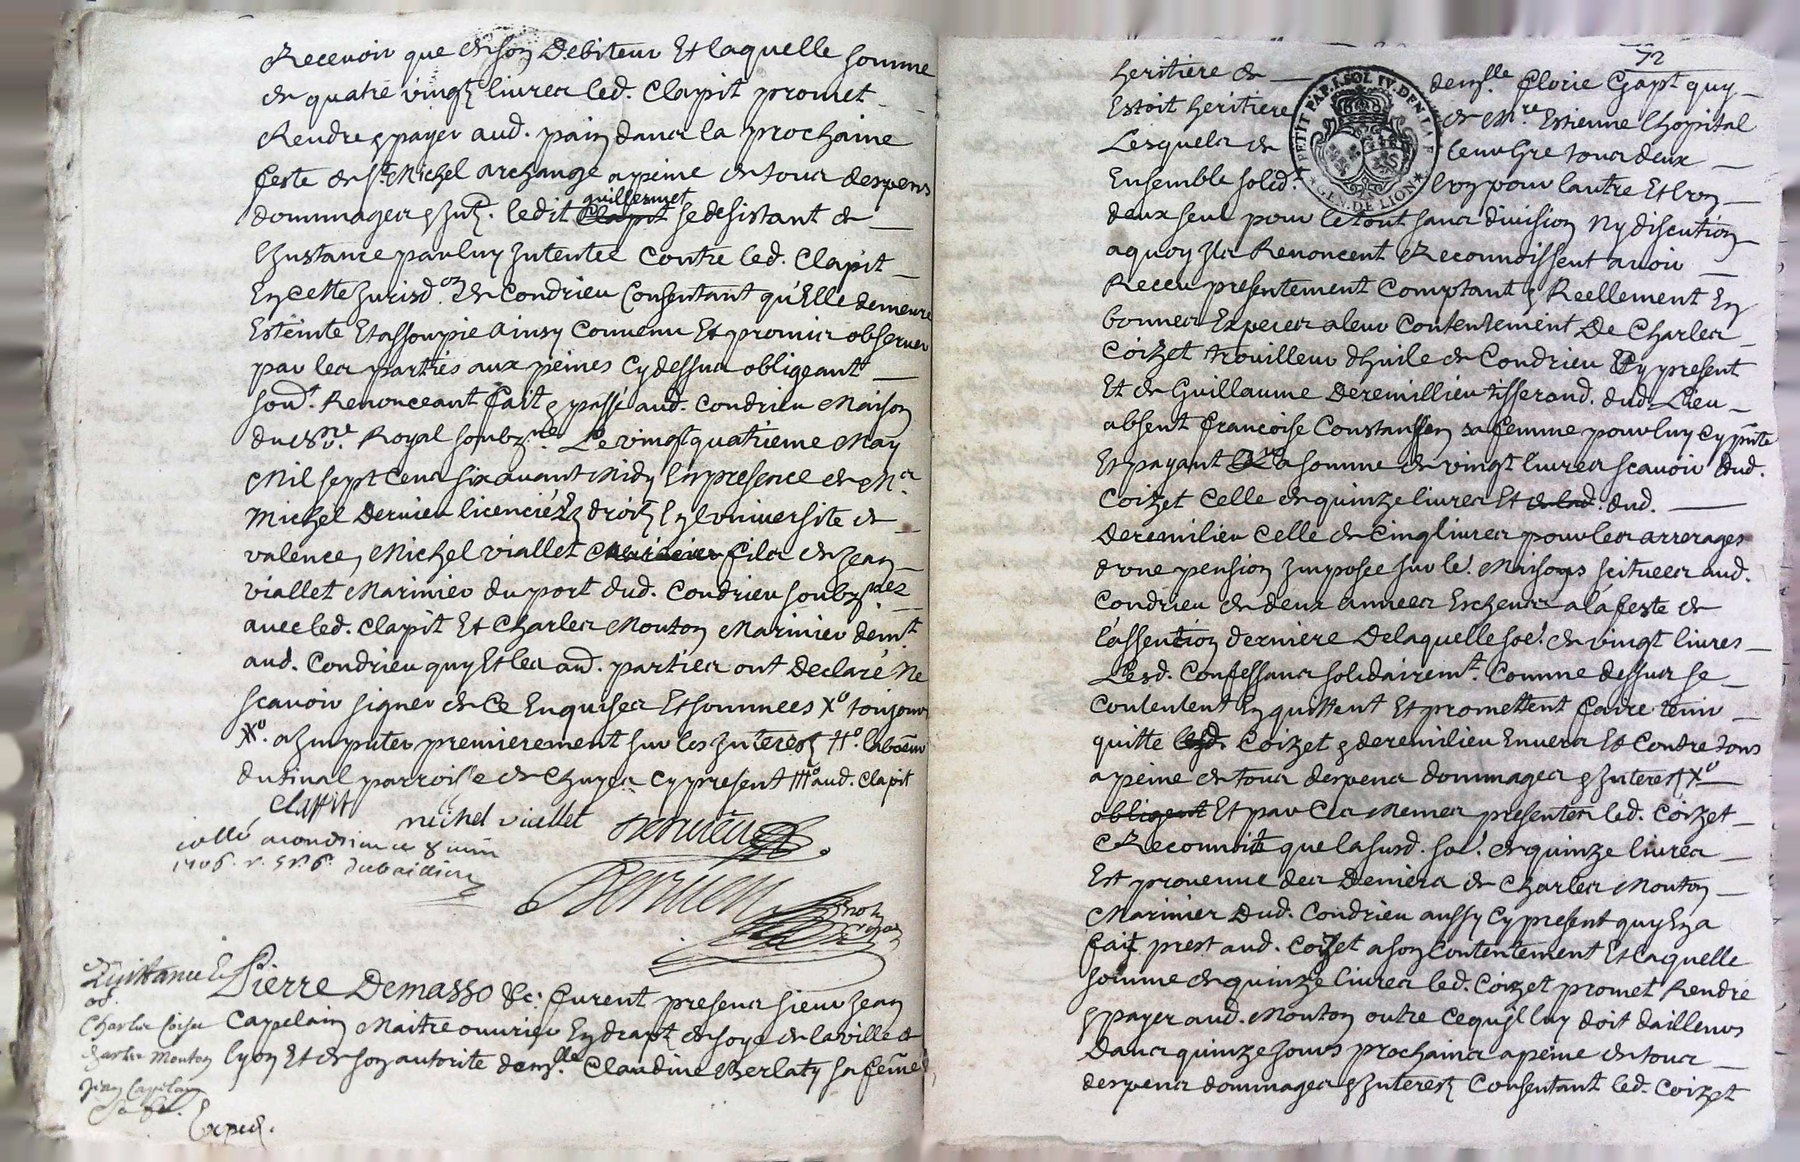 Recevoir que de son Debiteur Et laquelle somme
de quatre vingt livres led. Clapit promet
Rendre & payer aud. pain dans la prochaine
feste de St Michel archange a peine de tous despens
guillermet
dommages & Int. ledit Clapit se desistant de
L'Instance par luy Intentée Contre led. Clapit
En cette Jurisd.on de Condrieu Consentant qu'Elle demeure
Esteinte Et assoupie ainsy Convenu Et promis observer
par les parties aux peines Cy dessus obligeant
soud. Renonceant fait & passé aud. Condrieu Maison
du No.re Royal soubz.né Le vingt quatrieme May
Mil sept Cens six avant Midy En presence de Mr.
Michel Dervieu licencié Es droitz En l'université de
valence, Michel viallet fils de Jean
viallet Marinier du port dud. Condrieu soubznez
avec led. Clapit Et Charles Mouton Marinier dem.t
aud. Condrieu qui Et les aud. parties ont Declaré Ne
scavoir signer de Ce Enquises Et sommées X° toujours
X°. a Imputer premierement sur les Interestz
parroisse de Chuyes Cy present aud. Clapit
Clapit
michel viallet Dervieu
a condrieu ce 8 juin
1706.
Dervieu
Quittance
Charles Coizet
Charles Mouton
Jean Capelain
Exped.
Pierre Demasso &c. furent presens sieur Jean
Capelain Maitre ouvrier En drapt de soye de la ville de
lyon Et de son autorité dem.lle Claudine Berlaty sa femme
72
heritiere de dem.lle Clorie Gapt quy
Estoit heritiere de Mre. Estienne lhopital
Lesquels de leur Gre tous deux
Ensemble solid.t l'un pour l'autre Et l'un
deux seul pour le tout sans division Ny discution
a quoy Ils Renoncent Reconnoissent avoir
Receu presentement Comptant & Reellement En
bonnes Especes a leur Contentement De Charles
Coizet trouilleur d'huile de Condrieu Cy present
Et de Guillaume Deremillieu tisserand. dud. Lieu
absent francoise Constansson sa femme pour luy Cy pnte
Et payant La somme de vingt livres scavoir dud.
Coizet Celle de quinze livres Et de lad. dud.
Deremilieu Celle de Cinq livres pour les arrerages
d'une pension Imposée sur le. Maisons scituees aud.
Condrieu de deux annees Escheues a la feste de
l'assention derniere De laquelle soe. de vingt livres
Lesd. Confessans solidairem.t Comme dessus se
Contentent En quittent Et promettent faire tenir
quitte lesd. Coizet & deremilieu Envers Et Contre tous
a peine de tous despens dommages & Interestz X°
obligeant Et par Ces Memes presentes led. Coizet
Reconnoit que la susd. soe. de quinze livres
Est provenue des Deniers de Charles Mouton
Marinier Dud. Condrieu aussy Cy present quy En a
fait prest aud. Coizet a son Contentement Et laquelle
somme de quinze livres led. Coizet promet Rendre
& payer aud. Mouton outre Ce qu'il luy doit dailleurs
Dans quinze Jours prochains a peine de tous
despens dommages & Interestz Consentant led. Coizet
PETIT PAP. 1. SOL IV. DEN. LA F.
GEN. DE LION